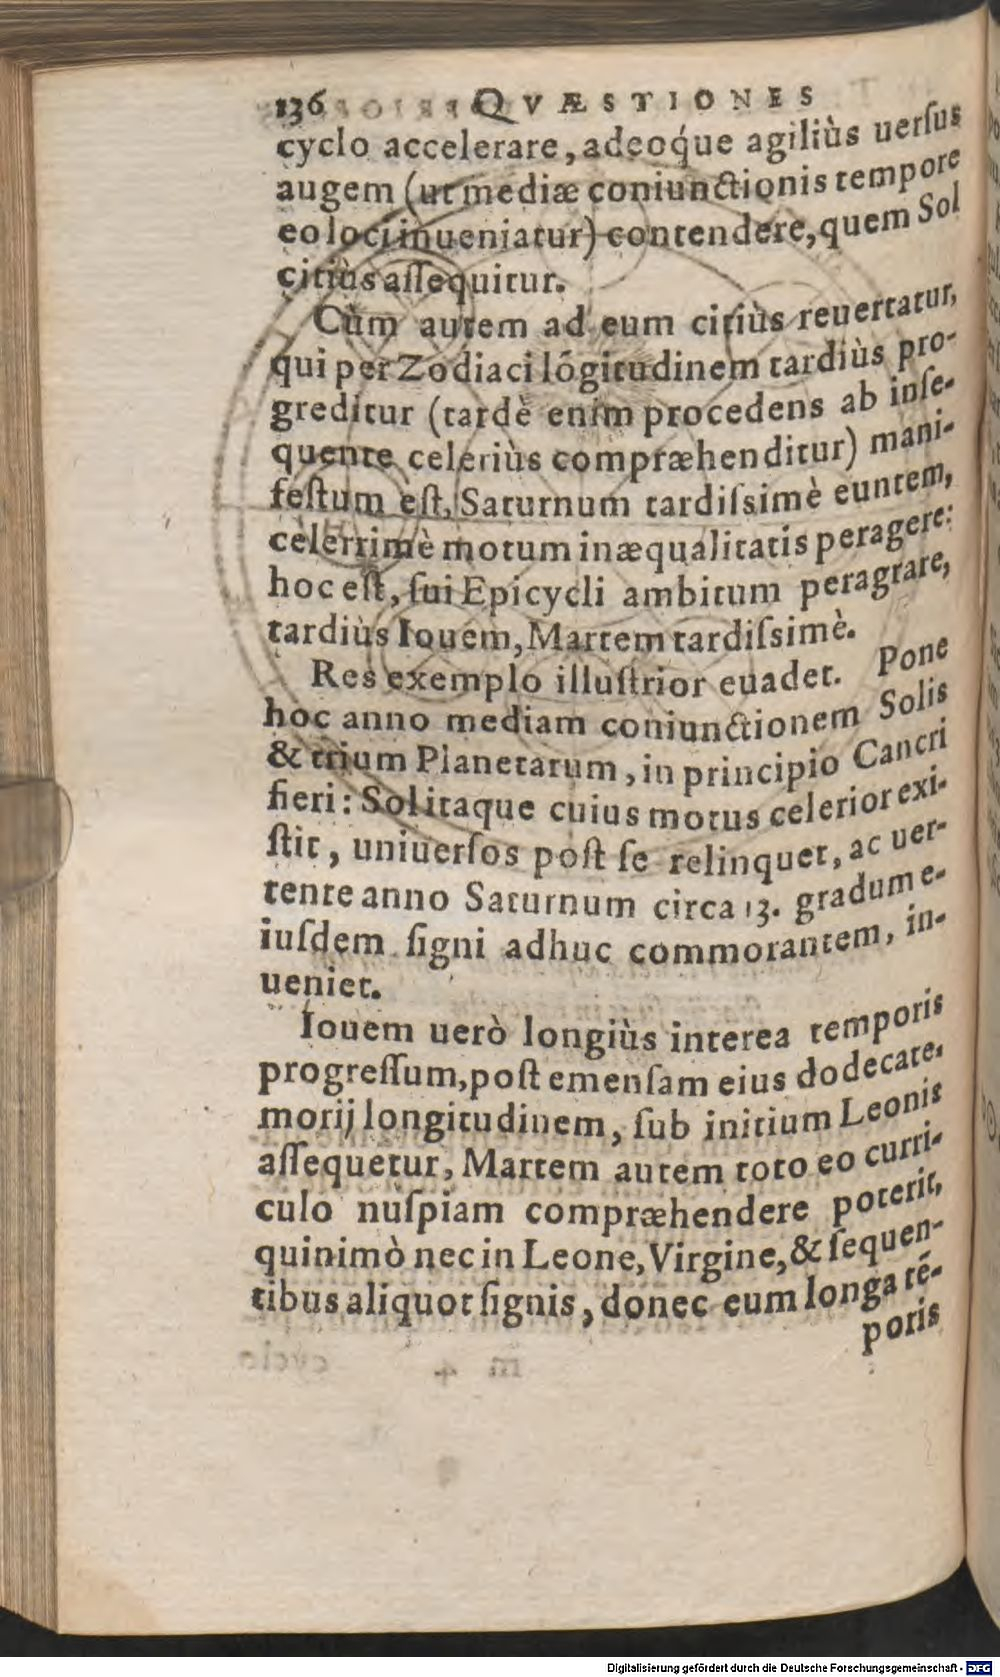 136 QVÆSTIONES
cyclo accelerare, adeoq́ue agiliùs uerſus
augem (ut mediæ coniunctionis tempore
eo loci inueniatur) contendere, quem Sol
citiùs aſſequitur.
Cùm autem ad eum citiùs reuertatur,
qui per Zodiaci lógitudinem tardiùs pro-
greditur (tardè enim procedens ab inſe-
quente celeriùs compræhenditur) mani-
feſtum eſt, Saturnum tardiſsimè euntem,
celerrimè motum inæqualitatis peragere:
hoc eſt, ſui Epicycli ambitum peragrare,
tardiùs Iouem, Martem tardiſsimè.
Res exemplo illuſtrior euadet. Pone
hoc anno mediam coniunctionem Solis
& trium Planetarum, in principio Cancri
fieri: Sol itaque cuius motus celerior exi-
ſtit, uniuerſos poſt ſe relinquet, ac uer-
tente anno Saturnum circa 13. gradum e-
iuſdem ſigni adhuc commorantem, in-
ueniet.
Iouem uerò longiùs interea temporis
progreſſum, poſt emenſam eius dodecate-
morij longitudinem, ſub initium Leonis
aſſequetur, Martem autem toto eo curri-
culo nuſpiam compræhendere poterit,
quinimò nec in Leone, Virgine, & ſequen-
tibus aliquot ſignis, donec eum longa té-
poris
Digitalisierung gefördert durch die Deutsche Forschungsgemeinschaft - DFG